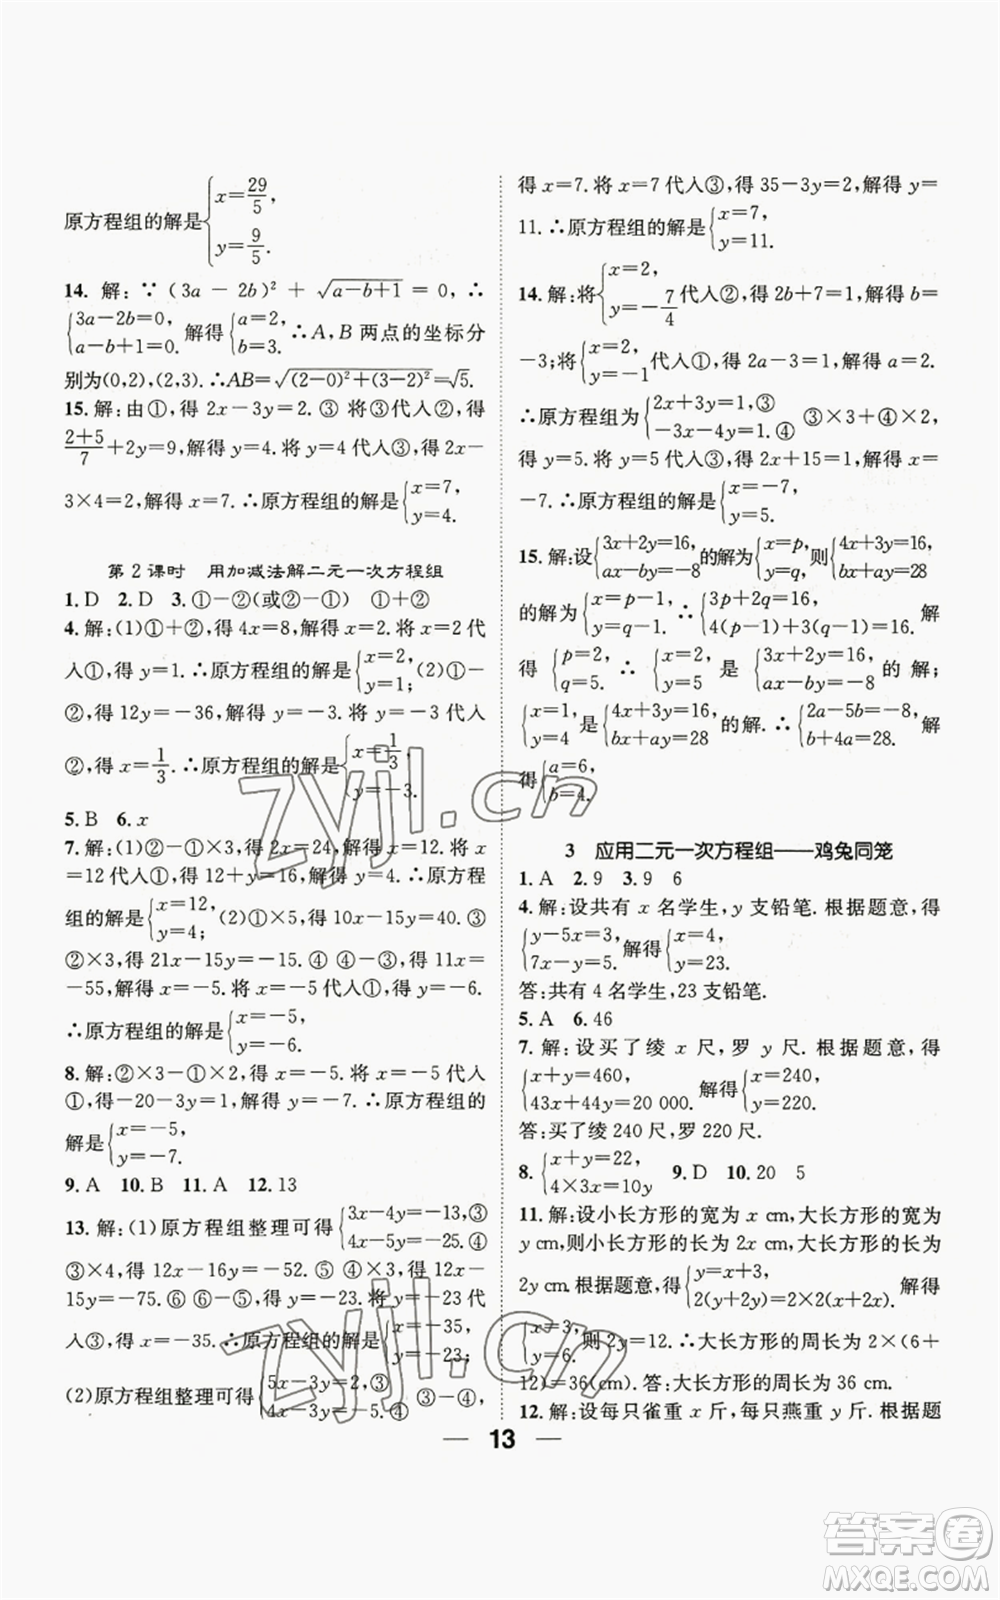 原方程组的解是{x=29/5, y=9/5.
14. 解：∵(3a－2b)²＋√(a－b+1)＝0，∴
{3a－2b=0, a－b+1=0. 解得{a=2, b=3. ∴A,B 两点的坐标分
别为(0,2),(2,3). ∴AB=√((2－0)²+(3－2)²)=√5.
15. 解：由①，得 2x－3y=2. ③ 将③代入②，得
(2+5)/7+2y=9，解得 y=4. 将 y=4 代入③，得 2x－
3×4=2，解得 x=7. ∴原方程组的解是{x=7, y=4.
第 2 课时 用加减法解二元一次方程组
1. D 2. D 3. ①－②(或②－①) ①＋②
4. 解：(1)①＋②，得 4x=8，解得 x=2. 将 x=2 代
入①，得 y=1. ∴原方程组的解是{x=2, y=1; (2)①－
②，得 12y=－36，解得 y=－3. 将 y=－3 代入
②，得 x=1/3. ∴原方程组的解是{x=1/3, y=－3.
5. B 6. x
7. 解：(1)②－①×3，得 2x=24，解得 x=12. 将 x
=12 代入①，得 12+y=16，解得 y=4. ∴原方程
组的解是{x=12, y=4; (2)①×5，得 10x－15y=40. ③
②×3，得 21x－15y=－15. ④ ④－③，得 11x=
－55，解得 x=－5. 将 x=－5 代入①，得 y=－6.
∴原方程组的解是{x=－5, y=－6.
8. 解：②×3－①×2，得 x=－5. 将 x=－5 代入
①，得－20－3y=1，解得 y=－7. ∴原方程组的
解是{x=－5, y=－7.
9. A 10. B 11. A 12. 13
13. 解：(1)原方程组整理可得{3x－4y=－13,③ 4x－5y=－25.④
③×4，得 12x－16y=－52. ⑤ ④×3，得 12x－
15y=－75. ⑥ ⑥－⑤，得 y=－23. 将 y=－23 代
入③，得 x=－35. ∴原方程组的解是{x=－35, y=－23.
(2)原方程组整理可得{5x－3y=2,③ 4x－3y=－5.④ ③－④，
得 x=7. 将 x=7 代入③，得 35－3y=2，解得 y=
11. ∴原方程组的解是{x=7, y=11.
14. 解：将{x=2, y=－7/4 代入②，得 2b+7=1，解得 b=
－3；将{x=2, y=－1 代入①，得 2a－3=1，解得 a=2.
∴原方程组为{2x+3y=1,③ －3x－4y=1.④ ③×3＋④×2，得
y=5. 将 y=5 代入③，得 2x+15=1，解得 x=
－7. ∴原方程组的解是{x=－7, y=5.
15. 解：设{3x+2y=16, ax－by=－8 的解为{x=p, y=q, 则{4x+3y=16, bx+ay=28
的解为{x=p－1, y=q－1. ∴{3p+2q=16, 4(p－1)+3(q－1)=16. 解
得{p=2, q=5. ∴{x=2, y=5 是{3x+2y=16, ax－by=－8 的解；
{x=1, y=4 是{4x+3y=16, bx+ay=28 的解. ∴{2a－5b=－8, b+4a=28. 解
得{a=6, b=4.
3 应用二元一次方程组——鸡兔同笼
1. A 2. 9 3. 9 6
4. 解：设共有 x 名学生，y 支铅笔. 根据题意，得
{y－5x=3, 7x－y=5. 解得{x=4, y=23.
答：共有 4 名学生，23 支铅笔.
5. A 6. 46
7. 解：设买了绫 x 尺，罗 y 尺. 根据题意，得
{x+y=460, 43x+44y=20 000. 解得{x=240, y=220.
答：买了绫 240 尺，罗 220 尺.
8. {x+y=22, 4×3x=10y 9. D 10. 20 5
11. 解：设小长方形的宽为 x cm，大长方形的宽为
y cm，则小长方形的长为 2x cm，大长方形的长为
2y cm. 根据题意，得{y=x+3, 2(y+2y)=2×2(x+2x). 解得
{x=3, y=6. 则 2y=12. ∴大长方形的周长为 2×(6+
12)=36(cm). 答：大长方形的周长为 36 cm.
12. 解：设每只雀重 x 斤，每只燕重 y 斤. 根据题
— 13 —
zyjl.cn
zyjl.cn
答案圈
MXQE.COM